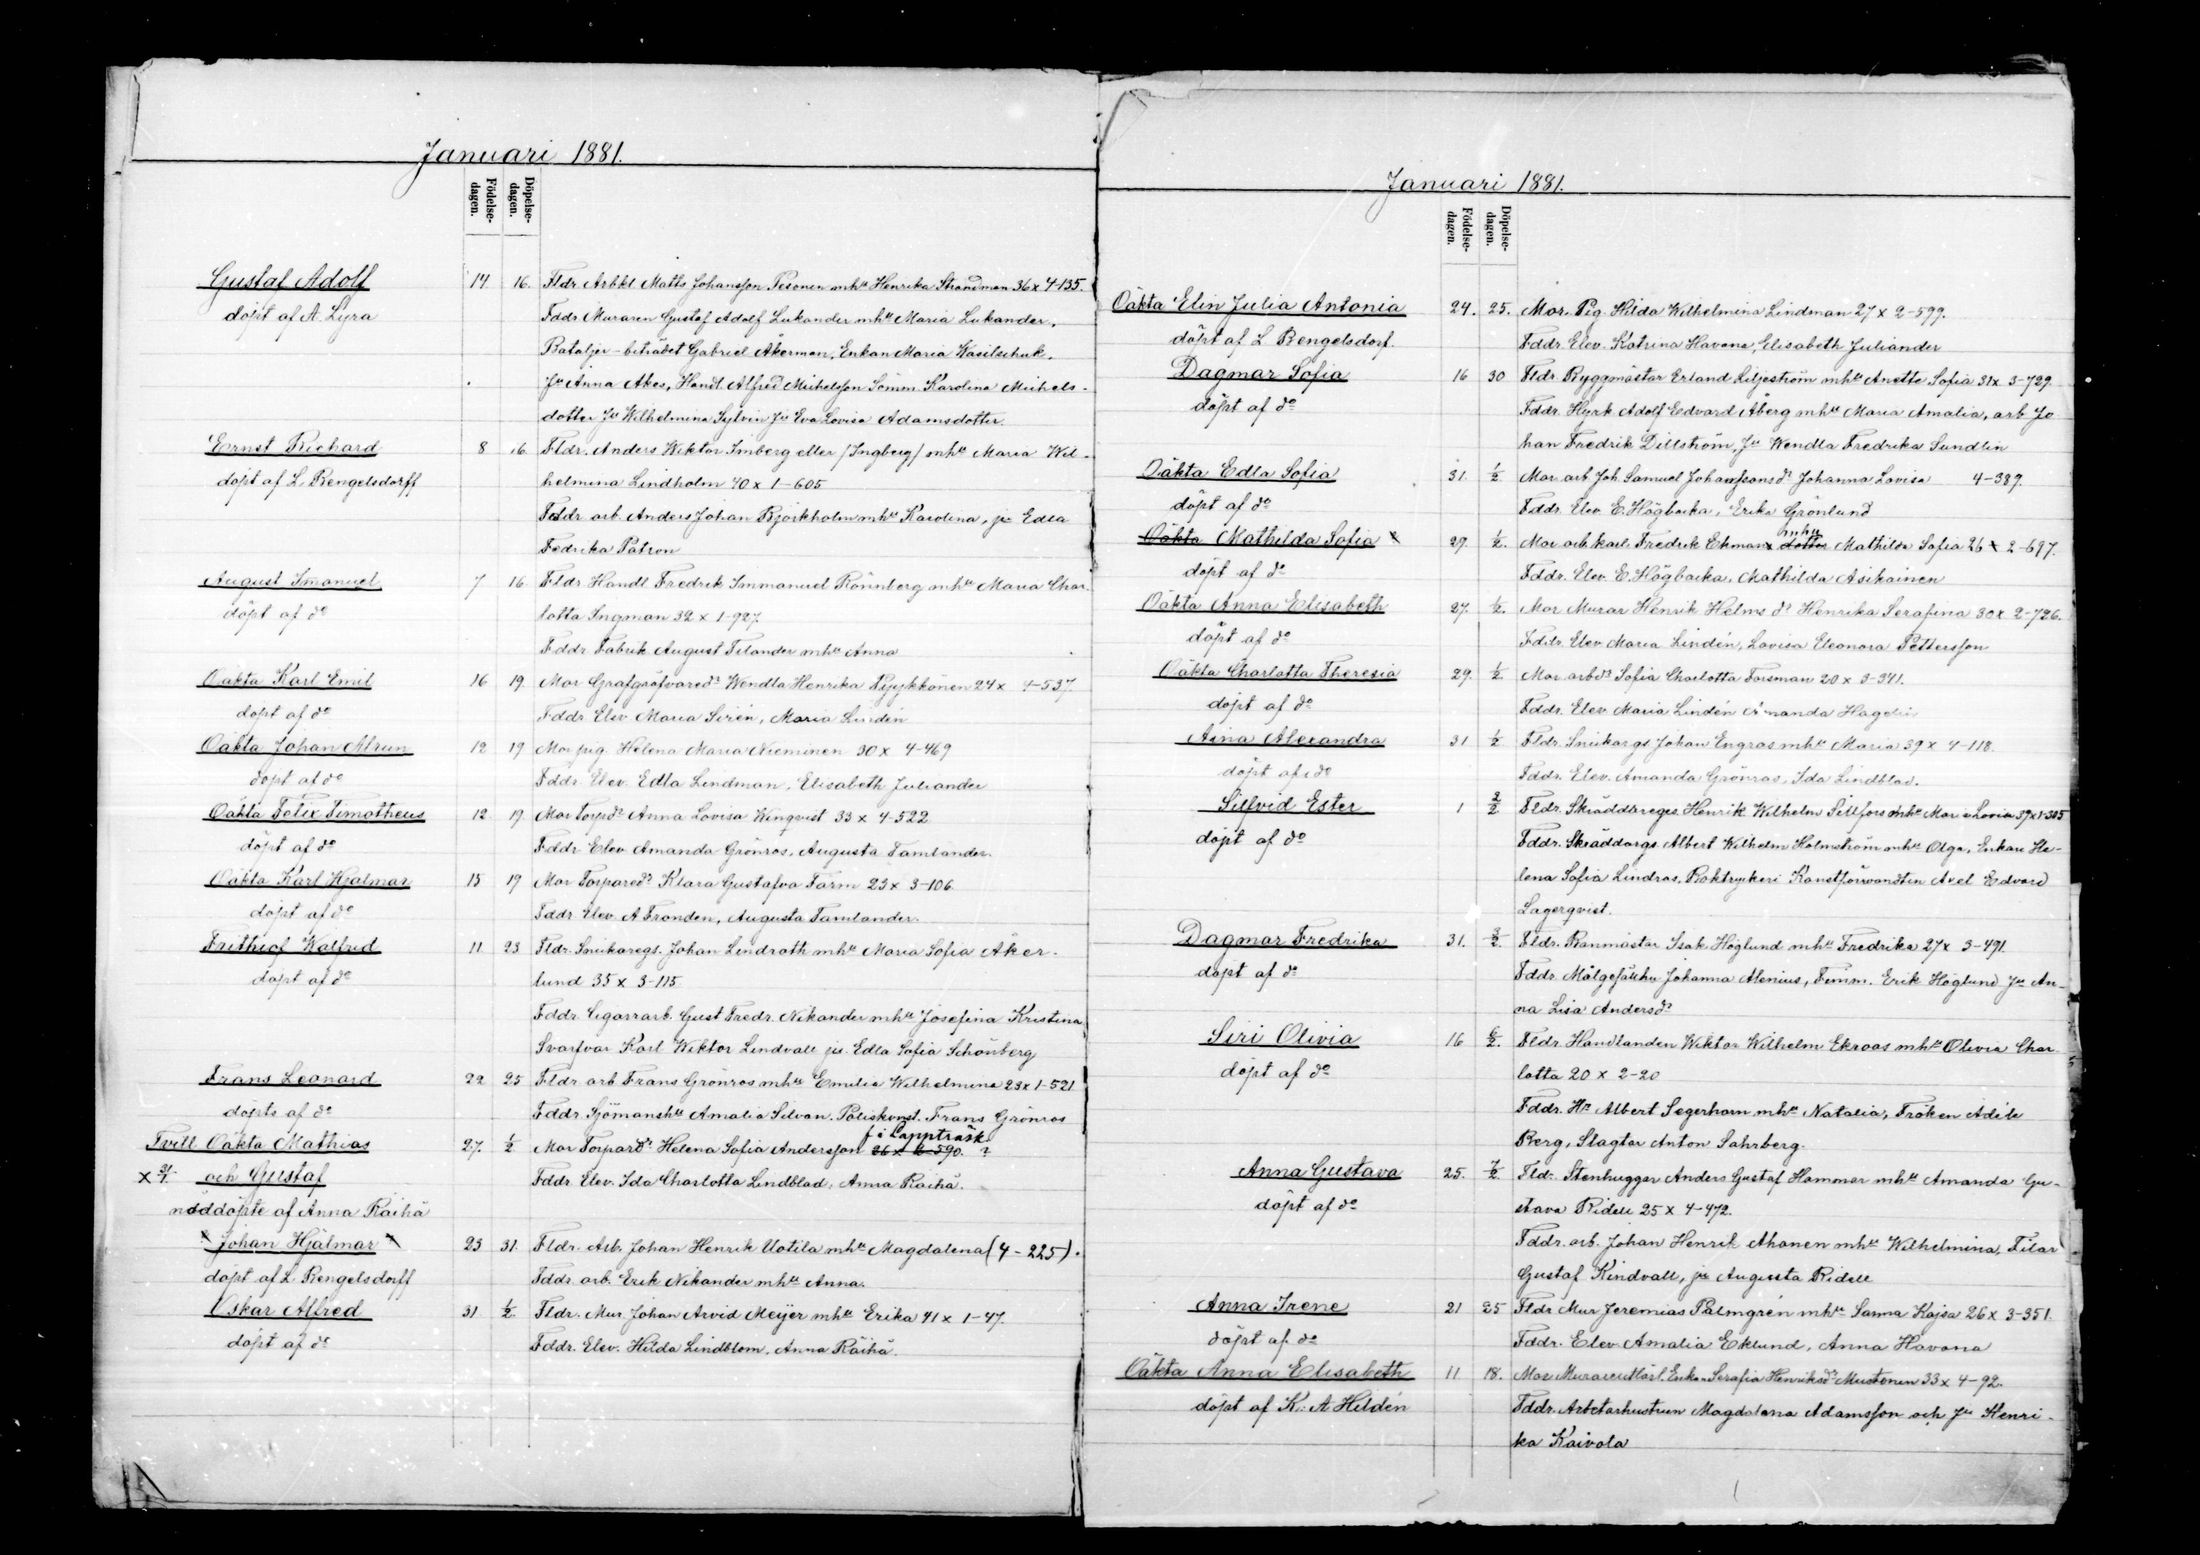 Januari 1881.
Födelse-dagen. Döpelse-dagen.
Gustaf Adolf 14 16. Fldr Arbkl Matts Johansson Pesonen mhu Henrika Strandman 36 x 4-135.
döpt af A. Lyra Fddr Muraren Gustaf Adolf Lukander mhu Maria Lukander,
Bataljer-beträdet Gabriel Åkerman, Enkan Maria Wasiltschuk,
Ju Anna Akes, Handl. Alfred Michelsson Sömm. Karolina Michels-
dotter Ju Wilhelmina Sylvin Ju Eva Lovisa Adamsdotter.
Ernst Richard 8 16. Fldr. Anders Wiktor Imberg eller /Ingberg/ mhu Maria Wil-
döpt af L. Rengelsdorff helmina Lindholm 40 x 1-605
Fddr arb. Anders Johan Björkholm mhu Karolina, ju Edla
Fedrika Patron
August Imanuel 7 16. Fldr. Handl Fredrik Immanuel Rönnberg mhu Maria Char
döpt af do lotta Ingman 32 x 1-927.
Fddr Fabrik August Tilander mhu Anna
Oäkta Karl Emil 16 19. Mor Grafgräfvaredr Wendla Henrika Pyykkönen 24 x 4-537.
döpt af do Fddr Elev Maria Sirén, Maria Lindén
Oäkta Johan Alrun 12 19 Mor pig. Helena Maria Nieminen 30 x 4-469
döpt af do Fddr Elev. Edla Lindman, Elisabeth Juliander
Oäkta Felix Timotheus 12 19 Mor Torpdr Anna Lovisa Winqvist 33 x 4-522
döpt af do Fddr Elev Amanda Grönros, Augusta Tamlander.
Oäkta Karl Hjalmar 15 19 Mor Torparedr Klara Gustafva Färm 23 x 3-106
döpt af do Fddr Elev. A Fronden, Augusta Tamlander.
Frithiof Walfrid 11 23 Fldr. Snickaregs. Johan Lindroth mhu Maria Sofia Åker-
döpt af do lund 35 x 3-115
Fddr. Cigarrarb. Gust Fredr. Nikander mhu Josefina Kristina
Svarfvar Karl Wiktor Lindvall ju Edla Sofia Schönberg
Frans Leonard 22 25 Fldr arb Frans Grönros mhu Emilia Wilhelmina 23 x 1-521
döpts af do Fddr. Sjömanshu Amalia Silvan. Poliskonst. Frans Grönros
f i Lappträsk
Tvill Oäkta Mathias 27. 1/2 Mor Torpardr Helena Sofia Andersson 26 x 6-590. ?
x 31/1 och Gustaf Fddr Elev. Ida Charlotta Lindblad, Anna Räihä.
nöddöpte af Anna Räihä
Johan Hjalmar 23 31. Fldr. Arb. Johan Henrik Uotila mhu Magdalena (4-225).
döpt af L Rengelsdorff Fddr arb. Erik Nikander mhu Anna.
Oskar Alfred 31 1/2 Fldr. Mur. Johan Arvid Meijer mhu Erika 41 x 1-47.
döpt af do Fddr. Elev. Hilda Lindblom, Anna Räihä.
Januari 1881.
Födelse-dagen. Döpelse-dagen.
Oäkta Elin Julia Antonia 24. 25. Mor. Pig. Hilda Wilhelmina Lindman 27 x 2-599.
döpt af L Rengelsdorf Fddr. Elev. Katrina Havana, Elisabeth Juliander
Dagmar Sofia 16 30 Fldr. Byggmästar Erland Liljeström mhu Anette Sofia 31 x 3-729.
döpt af do Fddr. Hyrk Adolf Edvard Åberg mhu Maria Amalia, arb Jo
han Fredrik Dillström, Ju Wendla Fredrika Sundlin
Oäkta Edla Sofia 31. 1/2 Mor arb Joh. Samuel Johanssons dr Johanna Lovisa 4-389.
döpt af do Fddr. Elev. E. Högbacka, Erika Grönlund
mhu
Oäkta Mathilda Sofia 29. 1/2. Mor arb. karl. Fredrik Ekmans dotter Mathilda Sofia 26 x 2-697.
döpt af do Fddr. Elev. E. Högbacka, Mathilda Asikainen
Oäkta Anna Elisabeth 27. 1/2. Mor Murar Henrik Helms dr Henrika Serafina 30 x 2-726.
döpt af do Fddr. Elev Maria Lindén, Lovisa Eleonora Pettersson
Oäkta Charlotta Theresia 29. 1/2 Mor arb dr Sofia Charlotta Forsman 20 x 3-341.
döpt af do Fddr. Elev. Maria Lindén Amanda Hagelin
Aina Alexandra 31 1/2 Fldr. Snickargs Johan Engros mhu Maria 39 x 4-118.
döpt af do Fddr. Elev. Amanda Grönros, Ida Lindblad.
Silfvid Ester 1 2/2 Fldr. Skräddaregs. Henrik Wilhelm Sillfors mhu Maria Lovisa 39 x 1-305
döpt af do Fddr. Skräddargs. Albert Wilhelm Holmström mhu Olga, Enkan He-
lena Sofia Lindros, Boktryckeri Konstförvandten Axel Edvard
Lagerqvist.
Dagmar Fredrika 31. 3/2. Fldr. Banmästar Isak Höglund mhu Fredrika 27 x 3-491.
döpt af do Fddr. Johanna Alenius, Timm. Erik Höglund Ju An-
na Lisa Andersdr
Siri Olivia 16 6/2. Fldr. Handlanden Wiktor Wilhelm Ekroos mhu Olivia Char
döpt af do lotta 20 x 2-20
Fddr. Hr Albert Segerhorn mhu Natalia, Fröken Adèle
Berg, Slagtar Anton Sahrberg.
Anna Gustava 25. 7/2. Fldr. Stenhuggar Anders Gustaf Hammar mhu Amanda Gu-
döpt af do stava Ridell 25 x 4-472.
Fddr. arb. Johan Henrik Ahonen mhu Wilhelmina, Filar
Gustaf Kindvall, ju Augusta Ridell
Anna Irene 21 25 Fldr Mur Jeremias Palmgrén mhu Sanna Kajsa 26 x 3-351.
döpt af do Fddr. Elev Amalia Eklund, Anna Havana
Oäkta Anna Elisabeth 11 18. Mor Enka Serafia Henriksdr Mustonen 33 x 4-92.
döpt af K. A Hildén Fddr. Arbetarhustrun Magdalena Adamsson och Ju Henri-
ka Kaivola